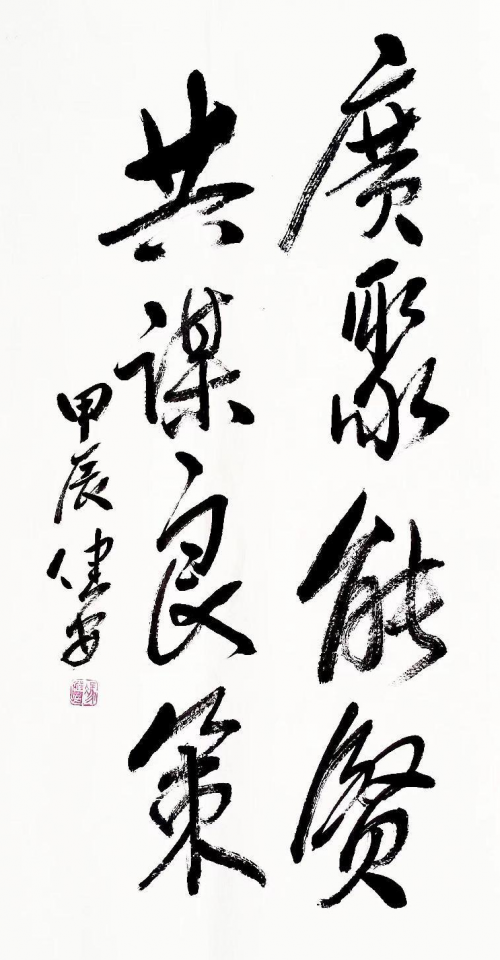 廣聚能賢
共謀良策
甲辰健安